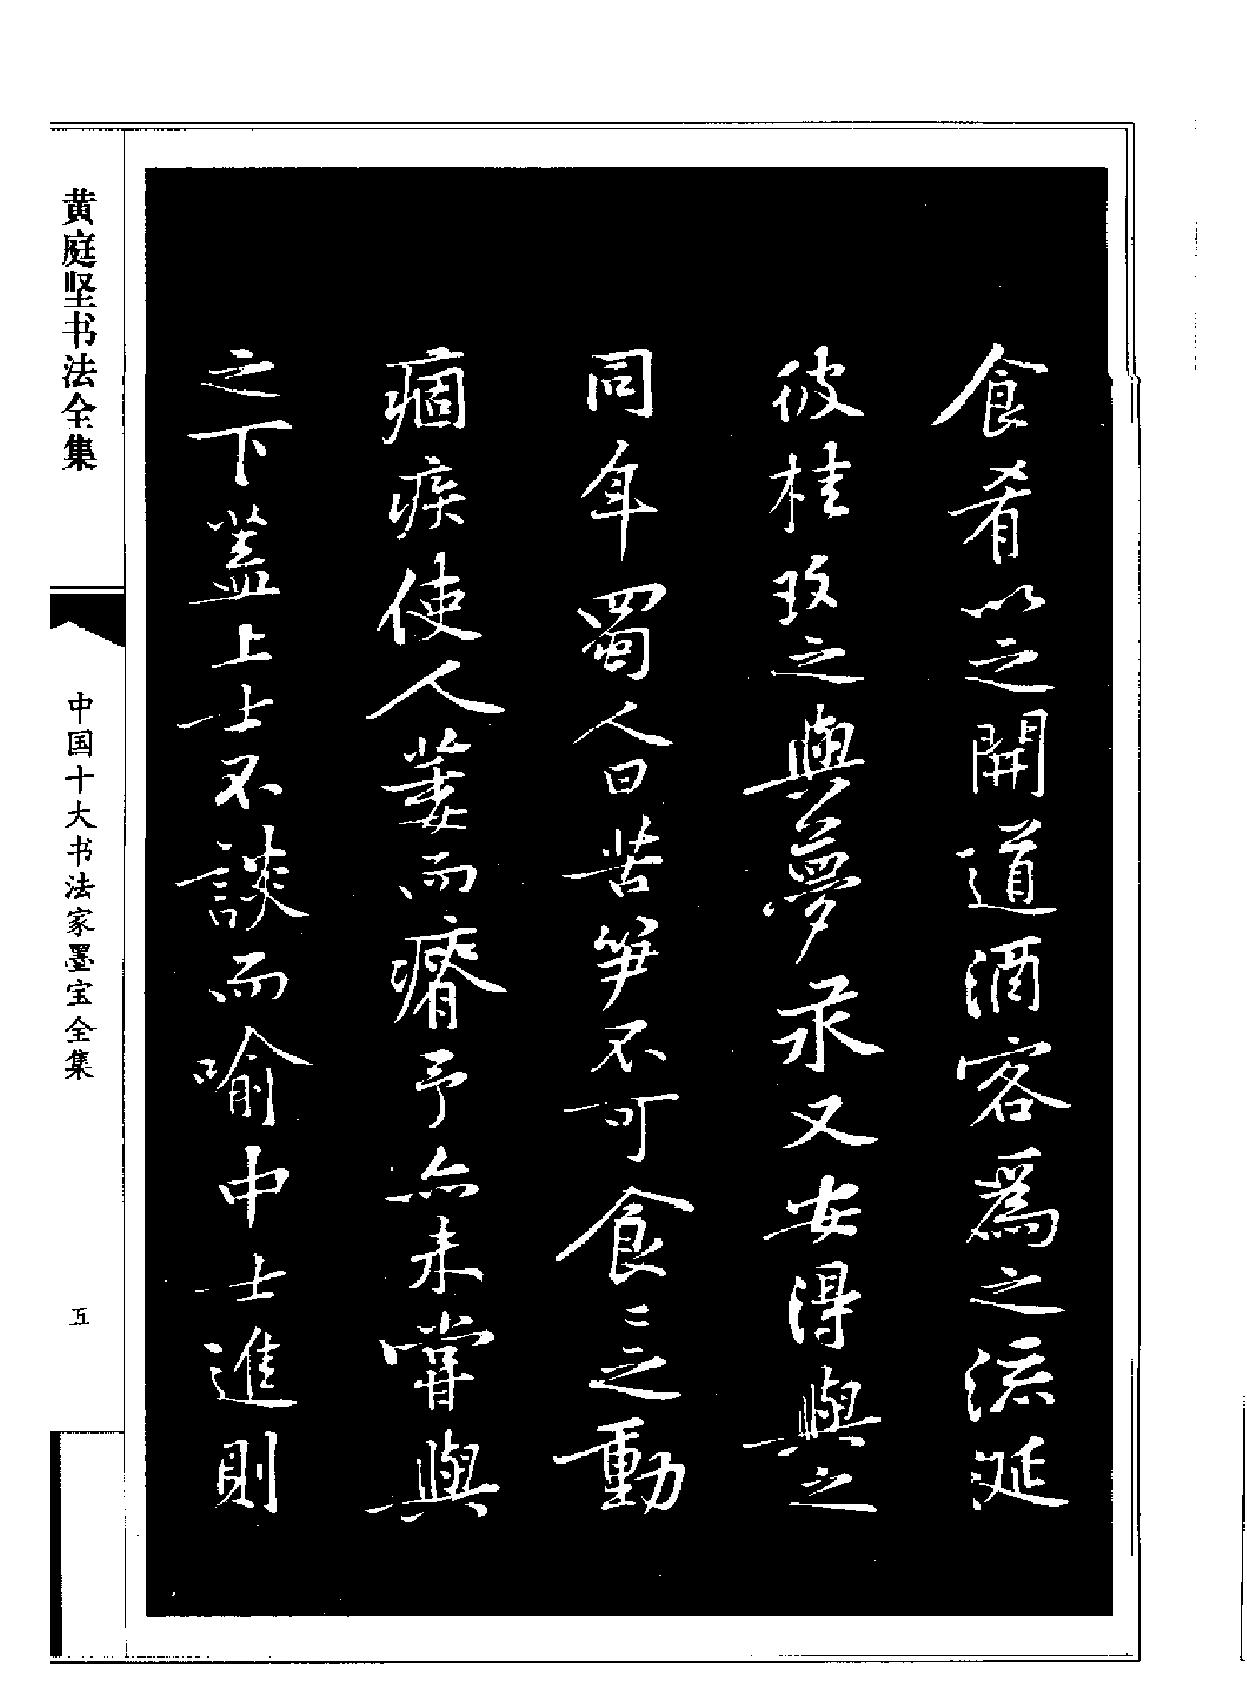 食肴以之開道酒客爲之流涎
彼桂玫之與夢永又安得與之
同年蜀人曰苦笋不可食〻之動
痼疾使人萎而瘠予亦未嘗與
之下蓋上士不談而喻中士進則
黄庭坚书法全集
中国十大书法家墨宝全集
五